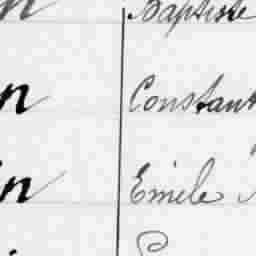 n Baptiste
n Constant
in Emile